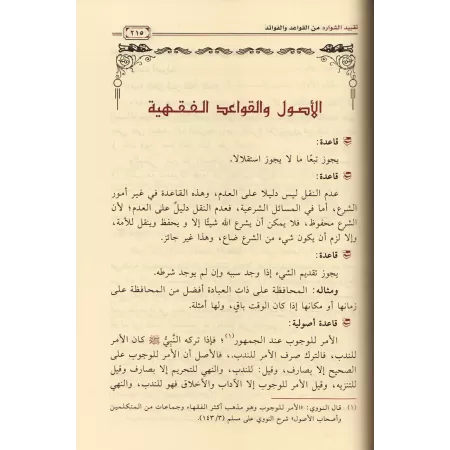 تقييد الشوارد من القواعد والفوائد
٢١٥
الأصول والقواعد الفقهية
قاعدة:
يجوز تبعًا ما لا يجوز استقلالا.
قاعدة:
عدم النقل ليس دليلا على العدم، وهذه القاعدة في غير أمور
الشرع، أما في المسائل الشرعية، فعدم النقل دليلٌ على العدم؛ لأن
الشرع محفوظ، فلا يمكن أن يشرع الله شيئًا إلا و يحفظ وينقل للأمة،
وإلا لزم أن يكون شيء من الشرع ضاع، وهذا غير جائز.
قاعدة:
يجوز تقديم الشيء إذا وجد سببه وإن لم يوجد شرطه.
ومثاله: المحافظة على ذات العبادة أفضل من المحافظة على
زمانها أو مكانها إذا كان الوقت باقٍ، ولها أمثلة.
قاعدة أصولية:
الأمر للوجوب عند الجمهور(١)؛ فإذا تركه النَّبِيُّ ﷺ كان الأمر
للندب، فالترك صرف الأمر للندب.، فالأصل أن الأمر للوجوب على
الصحيح إلا بصارف، وقيل: للندب، والنهي للتحريم إلا بصارف وقيل
للتنزيه، وقيل الأمر للوجوب إلا الآداب والأخلاق فهو للندب، والنهي
(١) قال النووي: «الأمر للوجوب وهو مذهب أكثر الفقهاء وجماعات من المتكلمين
وأصحاب الأصول» شرح النووي على مسلم (٣/ ١٤٣).